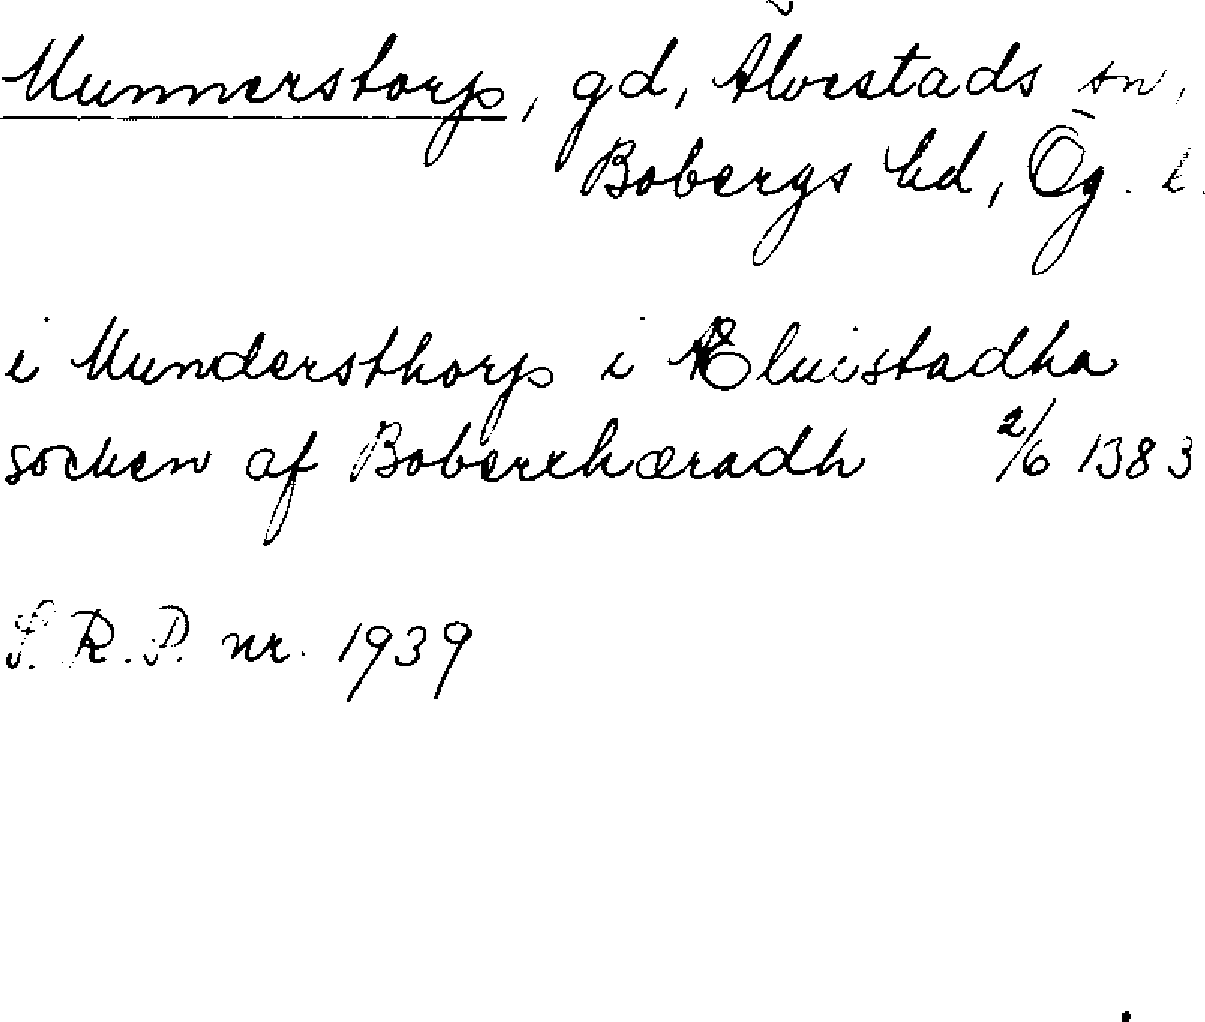 Munnerstorp, gd, Älvestads sn,
Bobergs hd, Ög. l.
i Mundersthorp i Æluistadha
socken af Boberxhæradh 2/6 1383
S. R. P. nr. 1939